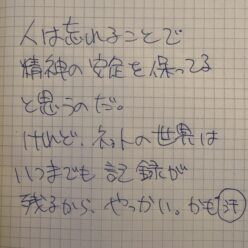 人は忘れることで
精神の安定を保ってる
と思うのだ。
けれど、ネットの世界は
いつまでも記録が
残るから、やっかい。かも